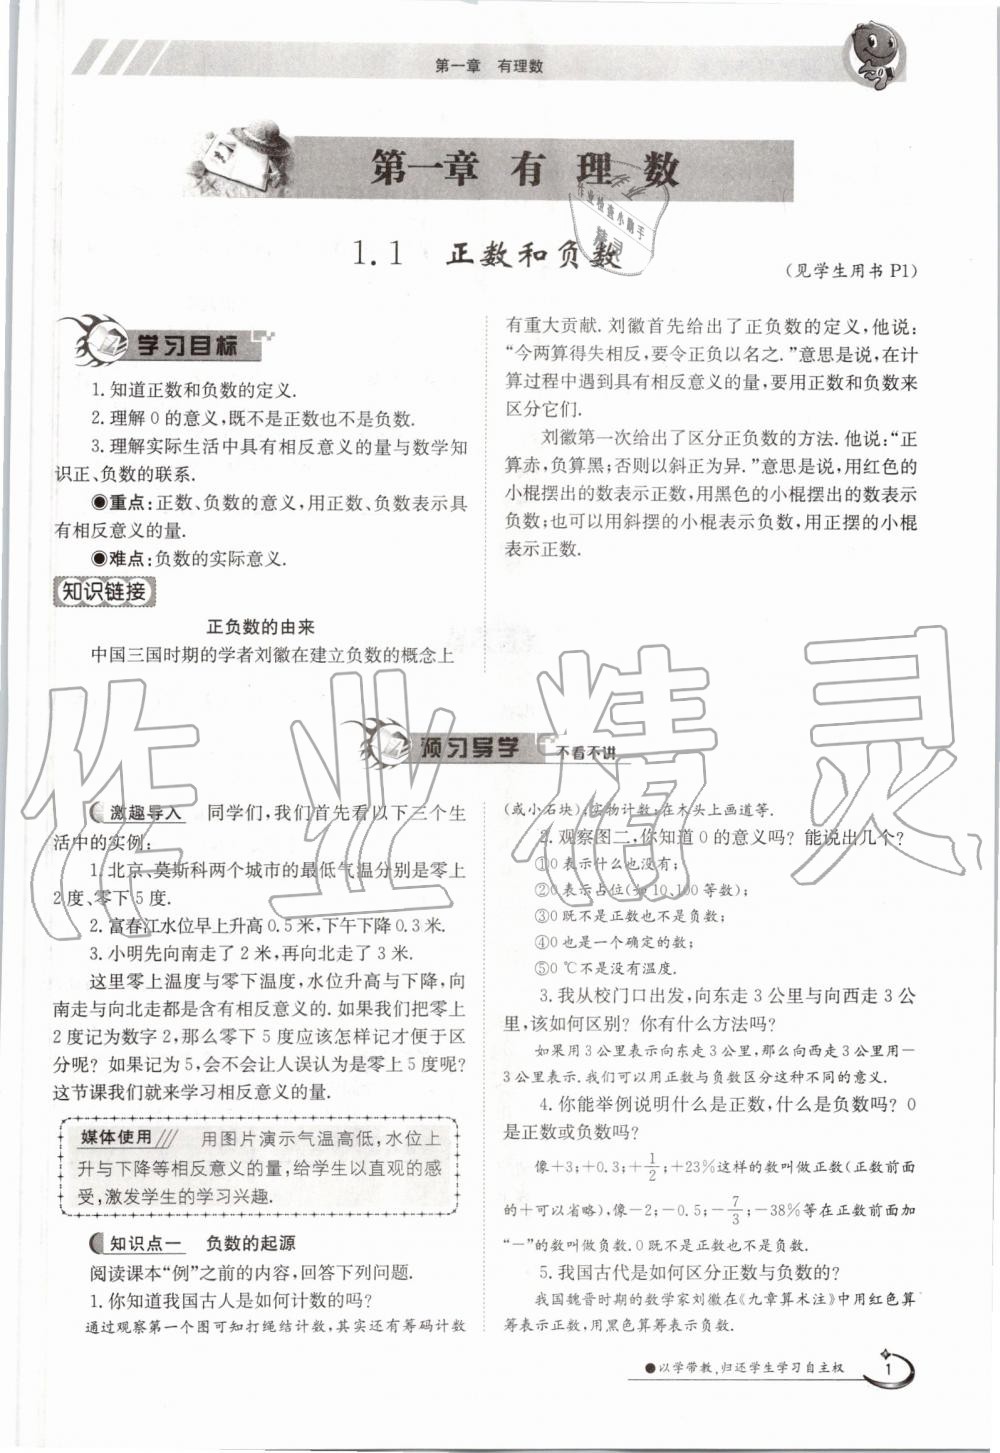 第一章 有理数
第一章 有理数
1.1 正数和负数
(见学生用书 P1)
学习目标
1. 知道正数和负数的定义.
2. 理解 0 的意义,既不是正数也不是负数.
3. 理解实际生活中具有相反意义的量与数学知
识正、负数的联系.
◉重点:正数、负数的意义,用正数、负数表示具
有相反意义的量.
◉难点:负数的实际意义.
知识链接
正负数的由来
中国三国时期的学者刘徽在建立负数的概念上
有重大贡献. 刘徽首先给出了正负数的定义,他说:
“今两算得失相反,要令正负以名之.”意思是说,在计
算过程中遇到具有相反意义的量,要用正数和负数来
区分它们.
刘徽第一次给出了区分正负数的方法. 他说:“正
算赤,负算黑;否则以斜正为异.”意思是说,用红色的
小棍摆出的数表示正数,用黑色的小棍摆出的数表示
负数;也可以用斜摆的小棍表示负数,用正摆的小棍
表示正数.
预习导学 不看不讲
激趣导入 同学们,我们首先看以下三个生
活中的实例:
1. 北京、莫斯科两个城市的最低气温分别是零上
2 度、零下 5 度.
2. 富春江水位早上升高 0.5 米,下午下降 0.3 米.
3. 小明先向南走了 2 米,再向北走了 3 米.
这里零上温度与零下温度,水位升高与下降,向
南走与向北走都是含有相反意义的. 如果我们把零上
2 度记为数字 2,那么零下 5 度应该怎样记才便于区
分呢? 如果记为 5,会不会让人误认为是零上 5 度呢?
这节课我们就来学习相反意义的量.
媒体使用 用图片演示气温高低,水位上
升与下降等相反意义的量,给学生以直观的感
受,激发学生的学习兴趣.
知识点一 负数的起源
阅读课本“例”之前的内容,回答下列问题.
1. 你知道我国古人是如何计数的吗?
通过观察第一个图可知打绳结计数,其实还有筹码计数
(或小石块);实物计数;在木头上画道等.
2. 观察图二,你知道 0 的意义吗? 能说出几个?
①0 表示什么也没有;
②0 表示占位(如 10、100 等数);
③0 既不是正数也不是负数;
④0 也是一个确定的数;
⑤0 ℃不是没有温度.
3. 我从校门口出发,向东走 3 公里与向西走 3 公
里,该如何区别? 你有什么方法吗?
如果用 3 公里表示向东走 3 公里,那么向西走 3 公里用－
3 公里表示. 我们可以用正数与负数区分这种不同的意义.
4. 你能举例说明什么是正数,什么是负数吗? 0
是正数或负数吗?
像+3;+0.3;+1/2;+23%这样的数叫做正数(正数前面
的+可以省略),像－2;－0.5;－7/3;－38%等在正数前面加
“－”的数叫做负数.0 既不是正数也不是负数.
5. 我国古代是如何区分正数与负数的?
我国魏晋时期的数学家刘徽在《九章算术注》中用红色算
筹表示正数,用黑色算筹表示负数.
●以学带教,归还学生学习自主权
1
作业检查小助手
精灵
作业精灵